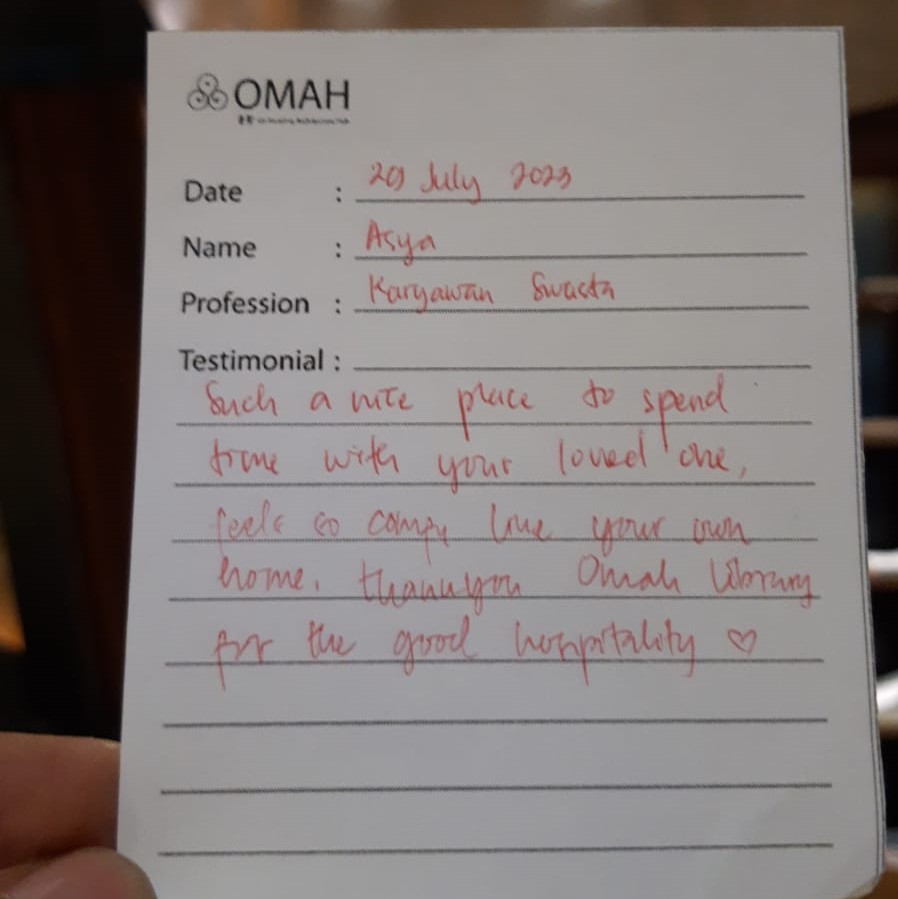 OMAH
Date : 29 July 2023
Name : Asya
Profession : Karyawan Swasta
Testimonial :
Such a nice place to spend
time with your loved one,
feels so comfy like your own
home. thankyou Omah library
for the good hospitality ♡